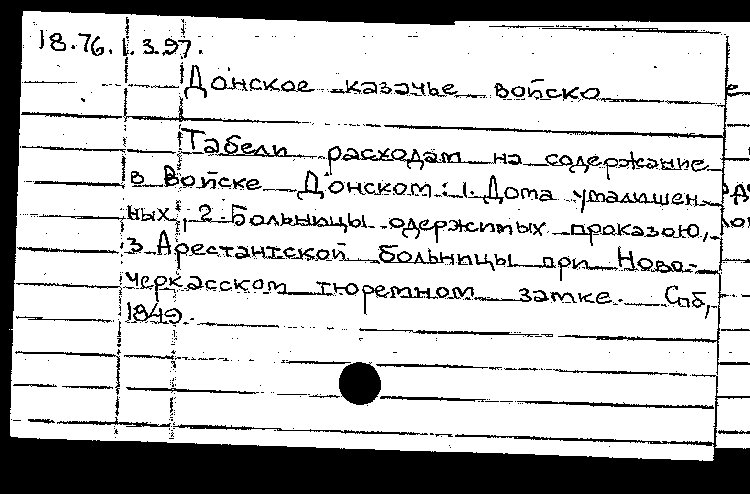 18.76.1.3.97.
Донское казачье войско
Табели расходам на содержание
в Войске Донском: 1. Дома умалишен-
ных, 2. Больницы одержимых проказою,
3 Арестантской больницы при Ново-
черкасском тюремном замке. Спб,
1849.